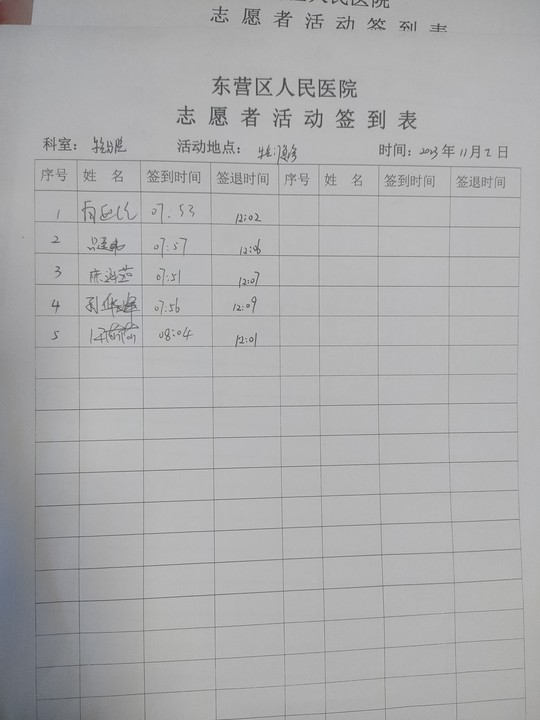 志愿者活动签到表
东营区人民医院
志愿者活动签到表
科室： 活动地点： 时间：2023年11月2日
序号 姓名 签到时间 签退时间 序号 姓名 签到时间 签退时间
1 07.53 12:02
2 07:57 12:06
3 07:51 12:07
4 07:56 12:09
5 08:04 12:01